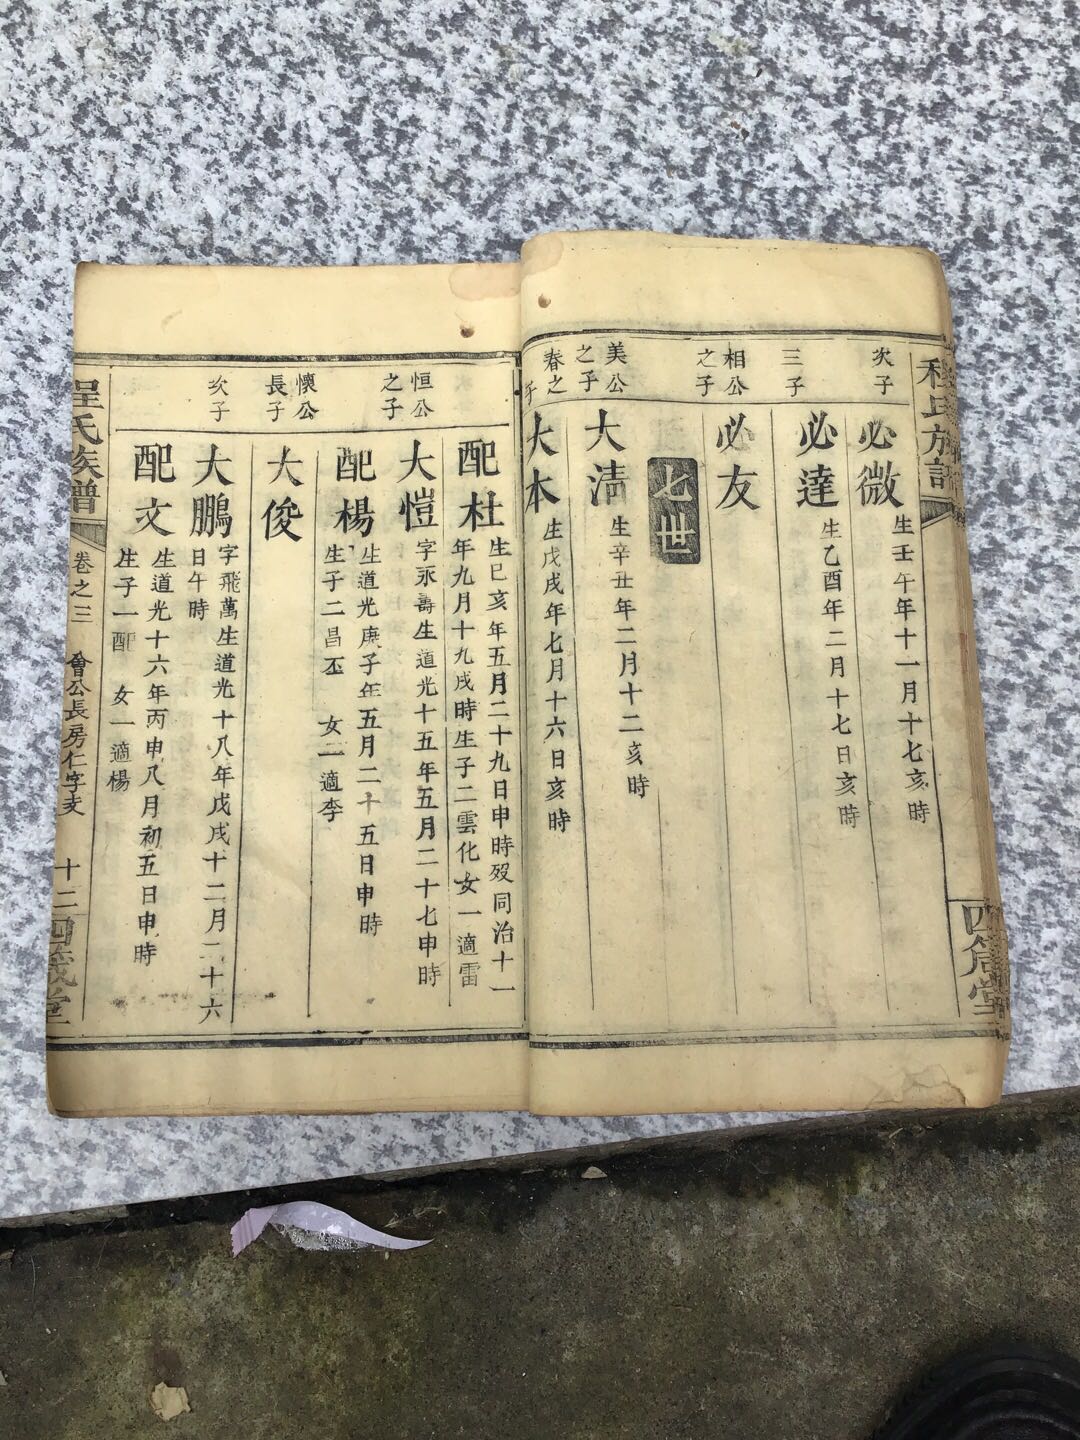 程氏族譜
四箴堂
次子
必微
生壬午年十一月十七亥時
三子
必達
生乙酉年二月十七日亥時
相公
之子
必友
七世
美公
之子
大清
生辛丑年二月十二亥時
春之
子
大本
生戊戌年七月十六日亥時
配杜
生巳亥年五月二十九日申時歿同治十一
年九月十九戌時生子二雲化女一適雷
恒公
之子
大愷
字永壽生道光十五年五月二十七申時
配楊
生道光庚子年五月二十五日申時
生子二昌丕 女二適李
懷公
長子
大俊
次子
大鵬
字飛萬生道光十八年戊戌十二月二十六
日午時
配文
生道光十六年丙申八月初五日申時
生子一配 女一適楊
程氏族譜
卷之三
會公長房仁字支
十二
四箴堂